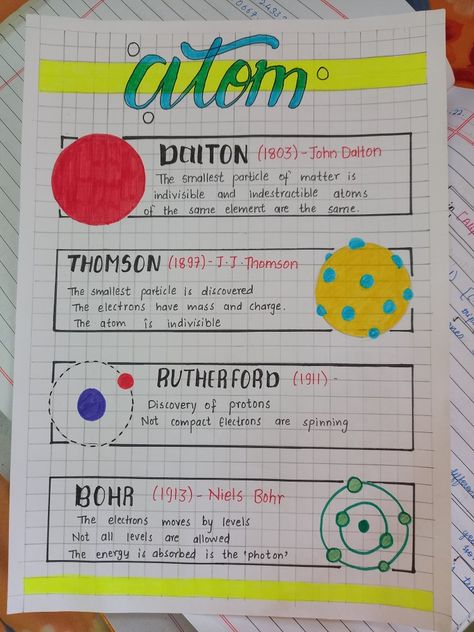 atom
DALTON (1803) - John Dalton
The smallest particle of matter is
indivisible and indestructible atoms
of the same element are the same.
THOMSON (1897) - J.J. Thomson
The smallest particle is discovered
The electrons have mass and charge.
The atom is indivisible
RUTHERFORD (1911) -
Discovery of protons
Not compact Electrons are spinning
BOHR (1913) - Niels Bohr
The electrons moves by levels
Not all levels are allowed
The energy is absorbed is the 'photon'